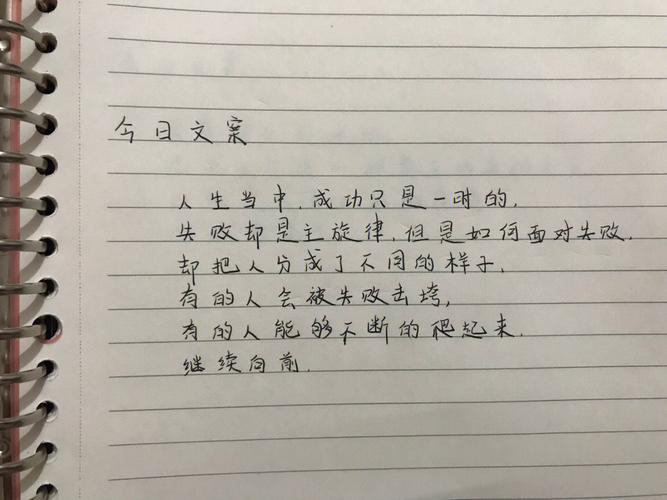 今日文案
人生当中,成功只是一时的,
失败却是主旋律,但是如何面对失败,
却把人分成了不同的样子,
有的人会被失败击垮,
有的人能够不断的爬起来,
继续向前.